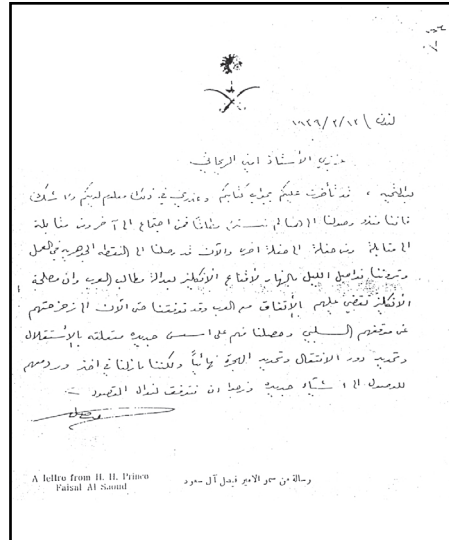 لندن ١٩٣٩/٢/١٢
عزيزي الأستاذ امين الريحاني
بعد التحية ، قد تأخرت عليكم بجواب كتابكم وعذري في ذلك معلوم لديكم ولا شك
فاننا منذ وصولنا الى هنا لم نسترح فمن اجتماع الى آخر ومن مقابلة
الى مقابلة ومن حفلة الى حفلة اخرى والآن قد وصلنا الى النقطة الجوهرية في العمل
الليل بالنهار لأقناع الأنكليز بعدالة مطالب العرب وان مصلحة
الانكليز تقضي عليهم بالأتفاق مع العرب وقد توفقنا حتى الآن الى زحزحتهم
عن موقفهم السلبي وحصلنا منهم على اسس جديدة متعلقة بالإستقلال
وتحديد دور الانتقال وتحديد الهجرة نهائياً ولكننا مازلنا في اخذ ورد معهم
للوصول الى اشياء جديدة ونرجو ان نتوفق لنوال المقصود
فيصل
A lettre from H. H. Prince
Faisal Al Saoud
رسالة من سمو الامير فيصل آل سعود